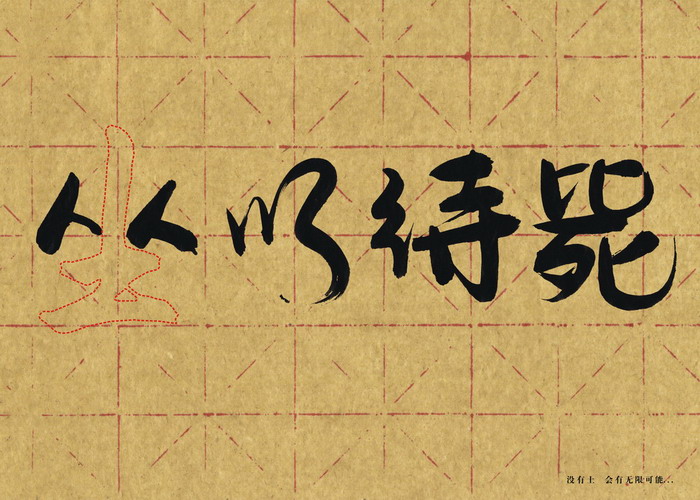 坐以待毙
没有土 会有无限可能...